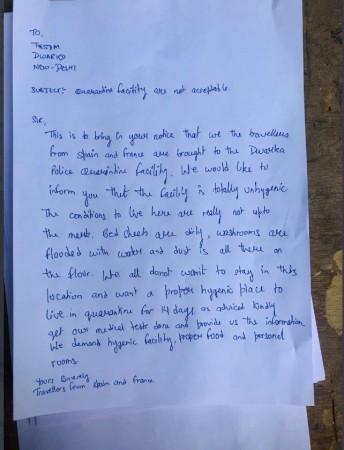 To,
DWARKA
NEW-DELHI
SUBJECT:- Quarantine facility are not acceptable.
Sir,
This is to bring in your notice that we the travellers
from Spain and france are brought to the Dwarka
Police Quarantine facility. We would like to
inform you that the facility is totally unhygenic
The conditions to live here are really not upto
the mark. Bed sheets are dirty, washrooms are
flooded with water and dust is all there on
the floor. We all donot want to stay in this
location and want a proper hygenic place to
live in quarantine for 14 days as adviced kindly
get our medical tests done and provide us the information
We demand hygenic facility, proper food and personal
rooms.
Yours Sincerely
Travellers from Spain and france